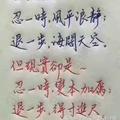 忍一時，風平浪靜；
退一步，海闊天空。
但現實卻是～
忍一時，變本加厲；
退一步，得寸進尺